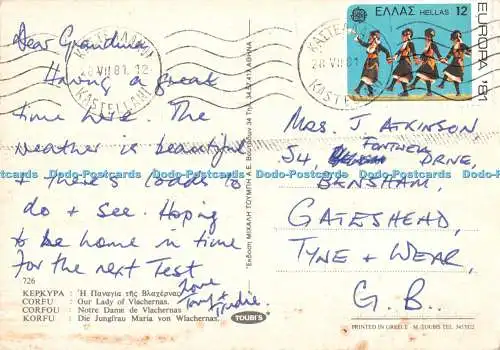 Dear Grandma,
Having a great
time here. The
weather is beautiful
& there's loads to
do & see. Hoping
to be home in time
for the next Test
Love
Tony & Trudie.
726
ΚΕΡΚΥΡΑ : Ἡ Παναγία τῆς Βλαχέρνας
CORFU : Our Lady of Vlachernas
CORFOU : Notre Dame de Vlachernas
KORFU : Die Jungfrau Maria von Wlachernas.
TOUBI'S
28 VII 81 12
KASTELLANI
28 VII 81
KASTELLANI
ΕΛΛΑΣ HELLAS 12
EUROPA '81
MRS. J. ATKINSON
54, FONTWELL DRIVE,
BENSHAM,
GATESHEAD,
TYNE & WEAR,
G.B.
PRINTED IN GREECE - M. TOUBIS TEL.
Dodo-Postcards Dodo-Postcards Dodo-Postcards Dodo-Postcards